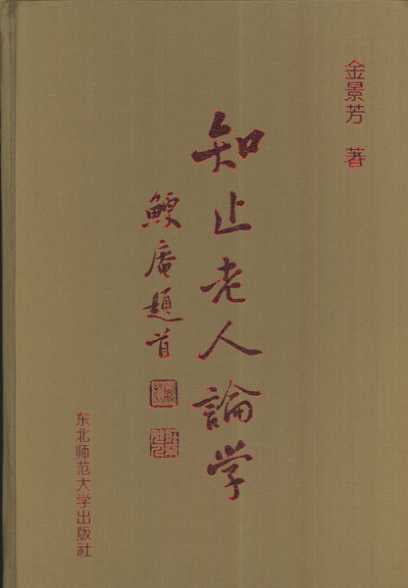 金景芳 著
知止老人論学
鯁庵題首
东北师范大学出版社